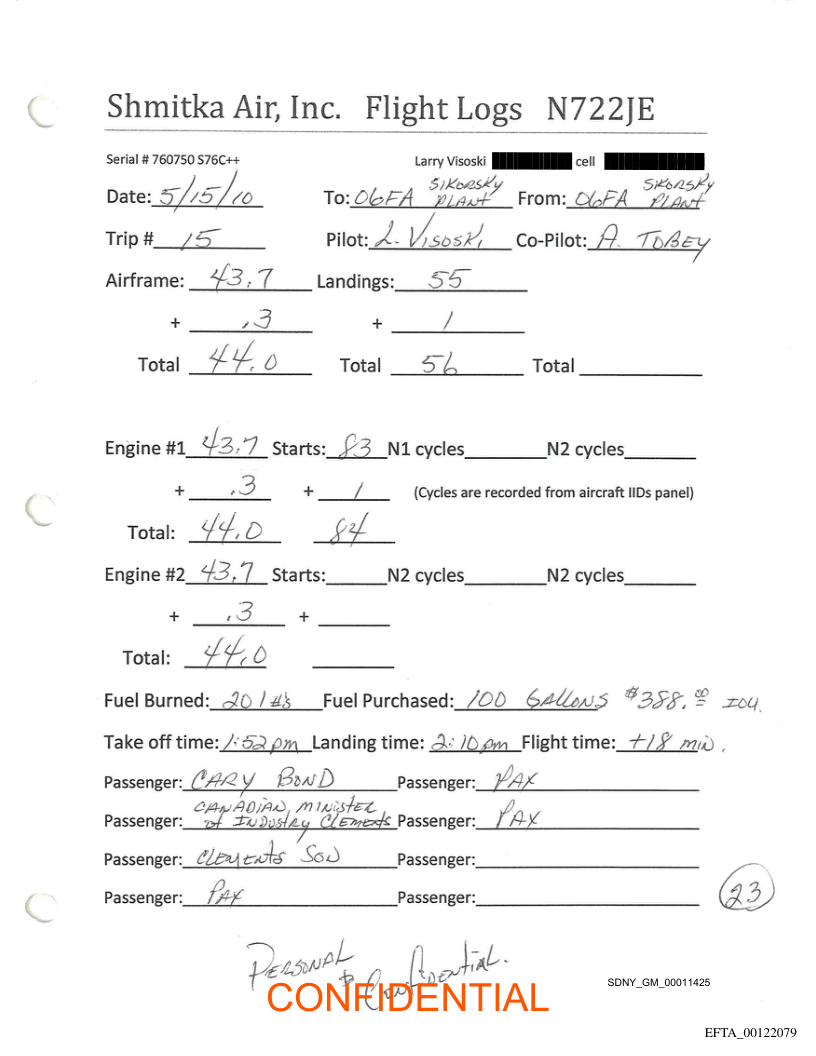 Shmitka Air, Inc. Flight Logs N722JE
Serial # 760750 S76C++ Larry Visoski cell
Date: 5/15/10 To: 06FA SIKORSKY PLANT From: 06FA SIKORSKY PLANT
Trip # 15 Pilot: L. VISOSKI Co-Pilot: A. TOBEY
Airframe: 43.7 Landings: 55
+ .3 + 1
Total 44.0 Total 56 Total
Engine #1 43.7 Starts: 83 N1 cycles N2 cycles
+ .3 + 1 (Cycles are recorded from aircraft IIDs panel)
Total: 44.0 84
Engine #2 43.7 Starts: N2 cycles N2 cycles
+ .3 +
Total: 44.0
Fuel Burned: 201 #'s Fuel Purchased: 100 GALLONS $388.00 IOU.
Take off time: 1:52 pm Landing time: 2:10 pm Flight time: +18 min.
Passenger: CARY BOND Passenger: PAX
Passenger: CANADIAN, MINISTER of INDUSTRY CLEMENTS Passenger: PAX
Passenger: CLEMENTS SON Passenger:
Passenger: PAX Passenger:
23
PERSONAL & CONFIDENTIAL.
CONFIDENTIAL
SDNY_GM_00011425
EFTA_00122079